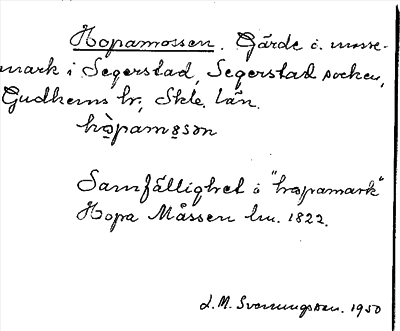 Hopamossen. Gärde i mosse-
mark i Segerstad, Segerstad socken,
Gudhems hr, Skbg. län.
hò̱pamₔsən
Samfällighet å "hopamark"
Hopa Måssen lm. 1822.
L. M. Svenungsson. 1950